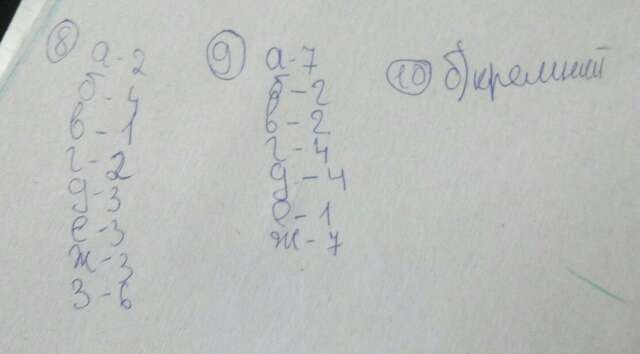 8
а-2
б-4
в-1
г-2
д-3
е-3
ж-3
з-6
9
а-7
б-2
в-2
г-4
д-4
е-1
ж-7
10 б)кремний